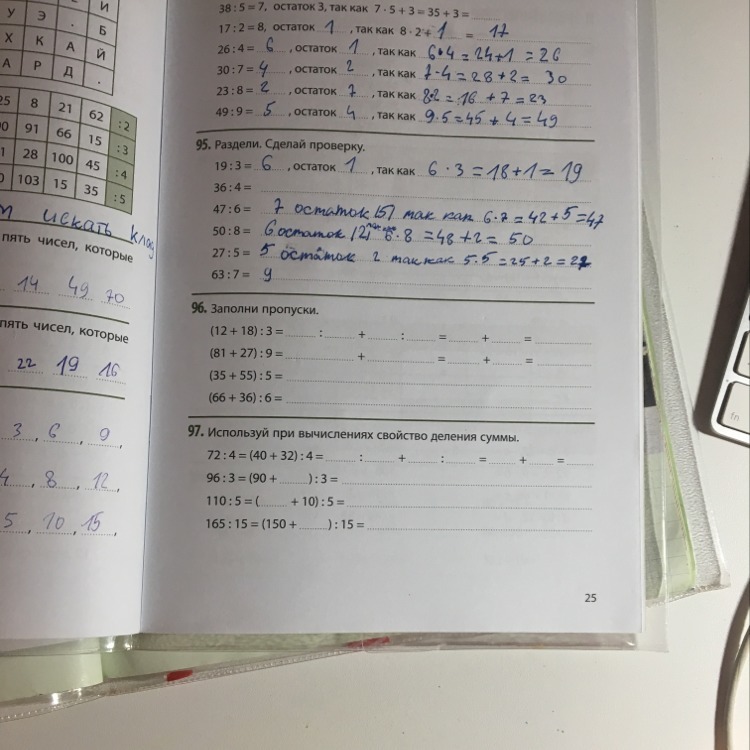 И
У Э . Б
Х К А Й
А Р Д .
25 8 21 62 :2
91 66 15 :3
28 100 45 :4
103 15 35 :5
искать клад
пять чисел, которые
14 49 70
пять чисел, которые
22 19 16
3, 6, 9,
4, 8, 12,
5, 10, 15,
38 : 5 = 7, остаток 3, так как 7 · 5 + 3 = 35 + 3 =
17 : 2 = 8, остаток 1, так как 8 · 2 + 1 = 17
26 : 4 = 6, остаток 1, так как 6·4 = 24+1 = 26
30 : 7 = 4, остаток 2, так как 7·4 = 28+2 = 30
23 : 8 = 2, остаток 7, так как 8·2 = 16 + 7 = 23
49 : 9 = 5, остаток 4, так как 9·5 = 45 + 4 = 49
95. Раздели. Сделай проверку.
19 : 3 = 6, остаток 1, так как 6 · 3 = 18+1 = 19
36 : 4 =
47 : 6 = 7 остаток (5) так как 6·7 = 42+5 = 47
50 : 8 = 6 остаток (2) 6·8 = 48+2 = 50
27 : 5 = 5 остаток 2 так как 5·5 = 25+2 = 27
63 : 7 = 9
96. Заполни пропуски.
(12 + 18) : 3 = : + : = + =
(81 + 27) : 9 = + = + =
(35 + 55) : 5 =
(66 + 36) : 6 =
97. Используй при вычислениях свойство деления суммы.
72 : 4 = (40 + 32) : 4 = : + : = + =
96 : 3 = (90 + ) : 3 =
110 : 5 = ( + 10) : 5 =
165 : 15 = (150 + ) : 15 =
25